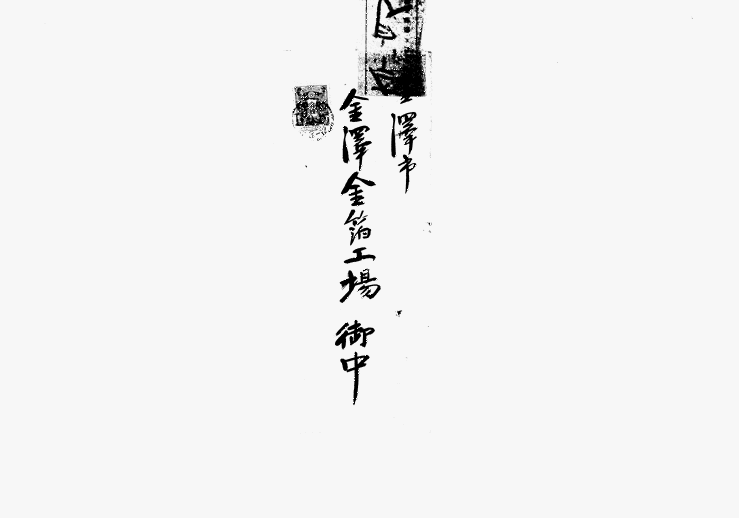 金澤市
金澤金箔工場 御中